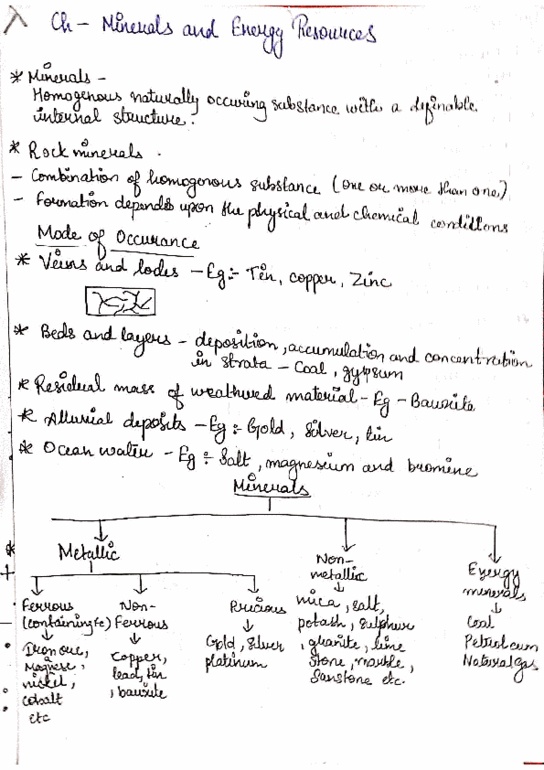 Ch - Minerals and Energy Resources
* Minerals -
Homogenous naturally occuring substance with a definable
internal structure.
* Rock minerals.
- Combination of homogenous substance (one or more than one.)
- Formation depends upon the physical and chemical conditions
Mode of Occurance
* Veins and lodes - Eg:- Tin, copper, Zinc
* Beds and layers - deposition, accumulation and concentration
in strata - Coal, gypsum
* Residual mass of weathered material - Eg - Bauxite
* Alluvial deposits - Eg:- Gold, Silver, tin
* Ocean water - Eg:- Salt, magnesium and bromine
Minerals
Metallic
Non-
metallic
Energy
minerals
Ferrous
(containing fe)
Non-
Ferrous
Precious
mica, salt,
potash, sulphur
, granite, lime
stone, marble,
Sanstone etc.
Coal
Petroleum
Natural gas
Iron ore,
Magnese,
nickel,
cobalt
etc
Copper,
lead, tin
, bauxite
Gold, Silver
platinum